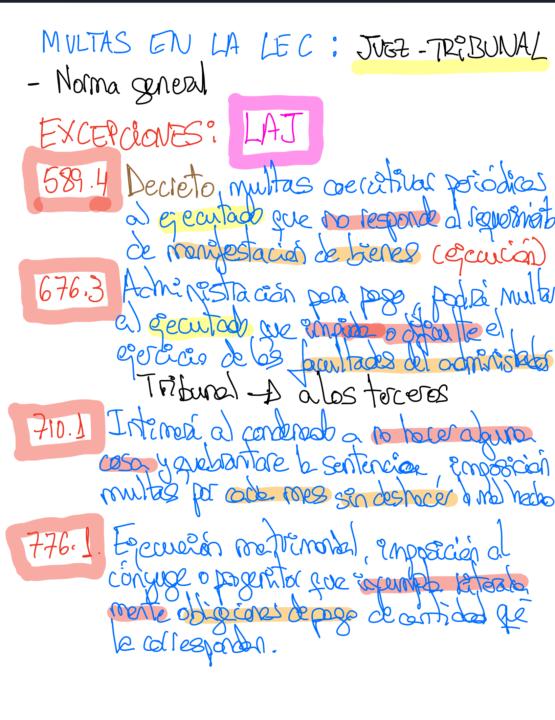 MULTAS EN LA LEC: JUEZ-TRIBUNAL
- Norma general
EXCEPCIONES: LAJ
589.4 Decreto, multas coercitivas periódicas
al ejecutado que no responde al requerimiento
de manifestación de bienes (ejecución)
676.3 Administración para pago, podrá multar
al ejecutado que impida o dificulte el
ejercicio de las facultades del administrador
Tribunal → a los terceros
710.1 Intimará al condenado a no hacer alguna
cosa y quebrantare la sentencia, imposición
multas por cada mes sin deshacer lo mal hecho
776.1. Ejecución matrimonial, imposición al
cónyuge o progenitor que incumpla reiterada
mente obligaciones de pago de cantidad que
le correspondan.